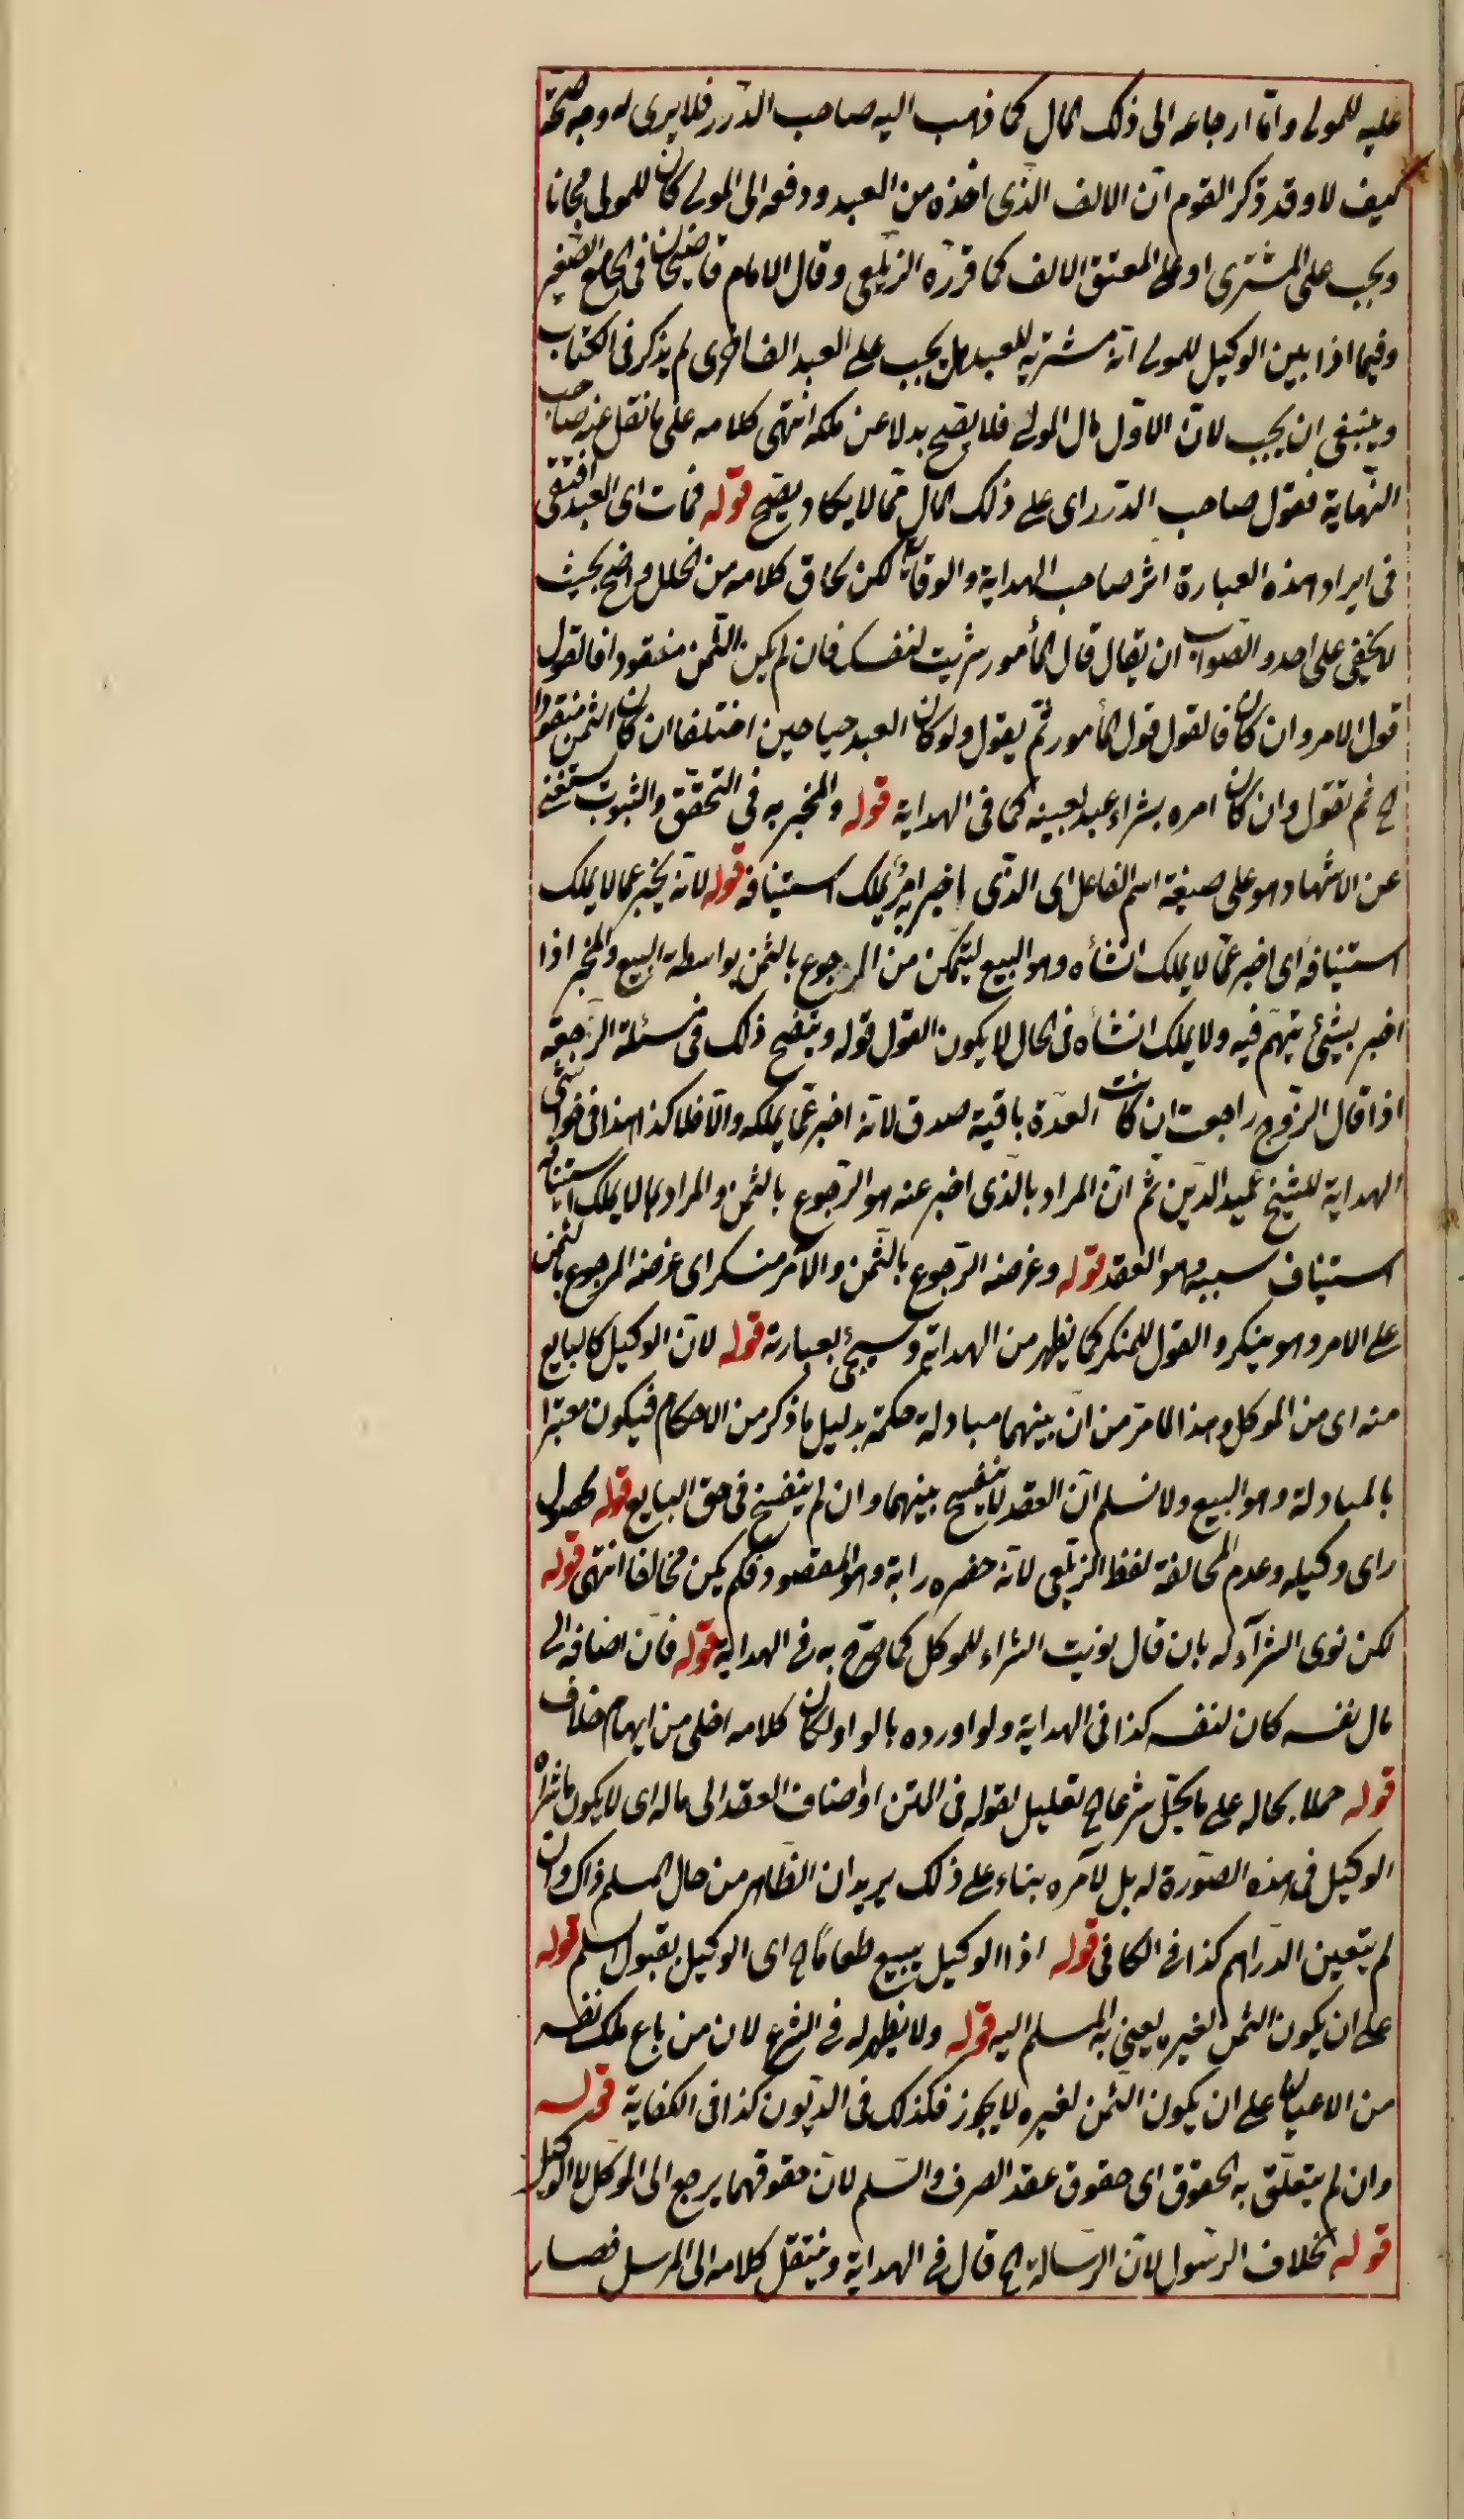 عليه للمولى واما ارجاعه الى ذلك المال كما ذهب اليه صاحب الدرر فلا يرى له وجه صحة
كيف لا وقد ذكر القوم ان الالف الذى اخذه من العبد ودفعه الى المولى كان للمولى مجانا
ويجب على المشترى او على المعتق الالف كما قرره الزيلعى وقال الامام قاضيخان فى الجامع الصغير
وفيما اذا بين الوكيل للمولى انه مشتريه للعبد هل يجب على العبد الف اخرى لم يذكر فى الكتاب
وينبغى ان يجب لان الاول مال المولى فلا يصح بدلا عن ملكه انتهى كلامه على ما نقل عنه صاحب
النهاية فقول صاحب الدرر اى على ذلك المال مما لا يكاد يصح قوله فمات اى العبد اقتفى
فى ايراد هذه العبارة اثر صاحب الهداية والوقاية لكن كلامه من الخلل واضح بحيث
لا يخفى على احد والصواب ان يقال قال المأمور شريت لنفسك فان لم يكن الثمن منقودا فالقول
قول الامر وان كان فالقول قول المأمور ثم يقول ولو كان العبد حيا حين اختلفا ان كان الثمن منقودا
الح ثم نقول وان كان امره بشراء عبد بعينه كما فى الهداية قوله والمخبر به فى التحقق والثبوت يستغنى
عن الاشهاد وهو على صيغة اسم الفاعل اى الذى اخبر امرا يملك استينافه قوله لانه يخبر عما لا يملك
استينافه اى اخبر عما لا يملك انشأه وهو البيع ليتمكن من الرجوع بالثمن بواسطة البيع والمخبر اذا
اخبر بشيئ يتهم فيه ولا يملك انشأه فى الحال لا يكون القول قوله ويتضح ذلك فى مسئلة الرجعة
اذا قال الزوج راجعت ان كانت العدة باقية صدق لانه اخبر عما يملكه والا فلا كذا هذا فى حواشى
الهداية للشيخ حميد الدين ثم ان المراد بالذى اخبر عنه هو الرجوع بالثمن والمراد بما لا يملك استينافه
استيناف سببه وهو العقد قوله وغرضه الرجوع بالثمن والآمر منكر اى غرضه الرجوع بالثمن
على الامر وهو ينكر والقول للمنكر كما يظهر من الهداية وسيجئ بعبارته قوله لان الوكيل كالبايع
منه اى من الموكل وهذا لما مر من ان بينهما مبادلة حكمية بدليل ما ذكر من الاحكام فيكون معتبرا
بالمبادلة وهو البيع ولا نسلم ان العقد لا ينفسخ بينهما وان لم ينفسخ فى حق البايع قوله لحصول
راى وكيله وعدم المخالفة لفظ الزيلعى لانه حضره رايه وهو المقصود فلم يكن مخالفا انتهى قوله
لكن نوى الشرآء له بان قال نويت الشراء للموكل كما صرح به فى الهداية قوله فان اضافه الى
مال نفسه كان لنفسه كذا فى الهداية ولو اورده بالواو لكان كلامه اخلى من ايهام خلاف
قوله حملا بحاله على ما يحل شرعا الح تعليل لقوله فى المتن او اضاف العقد الى ماله اى لا يكون ما شراه
الوكيل فى هذه الصورة له بل لآمره بناء على ذلك يريد ان الظاهر من حال المسلم ذاك وان
لم يتعين الدراهم كذا فى الكافى قوله اذ الوكيل يبيع طعاما الح اى الوكيل بقبول السلم قوله
على ان يكون الثمن لغيره يعنى به المسلم اليه قوله ولا نظير له فى الشرع لان من باع ملك نفسه
من الاعيان على ان يكون الثمن لغيره لا يجوز فكذلك فى الديون كذا فى الكفاية قوله
وان لم يتعلق به الحقوق اى حقوق عقد الصرف والسلم لان حقوقهما يرجع الى الموكل لا الوكيل
قوله بخلاف الرسول لان الرسالة الح قال فى الهداية وينتقل كلامه الى المرسل فصار